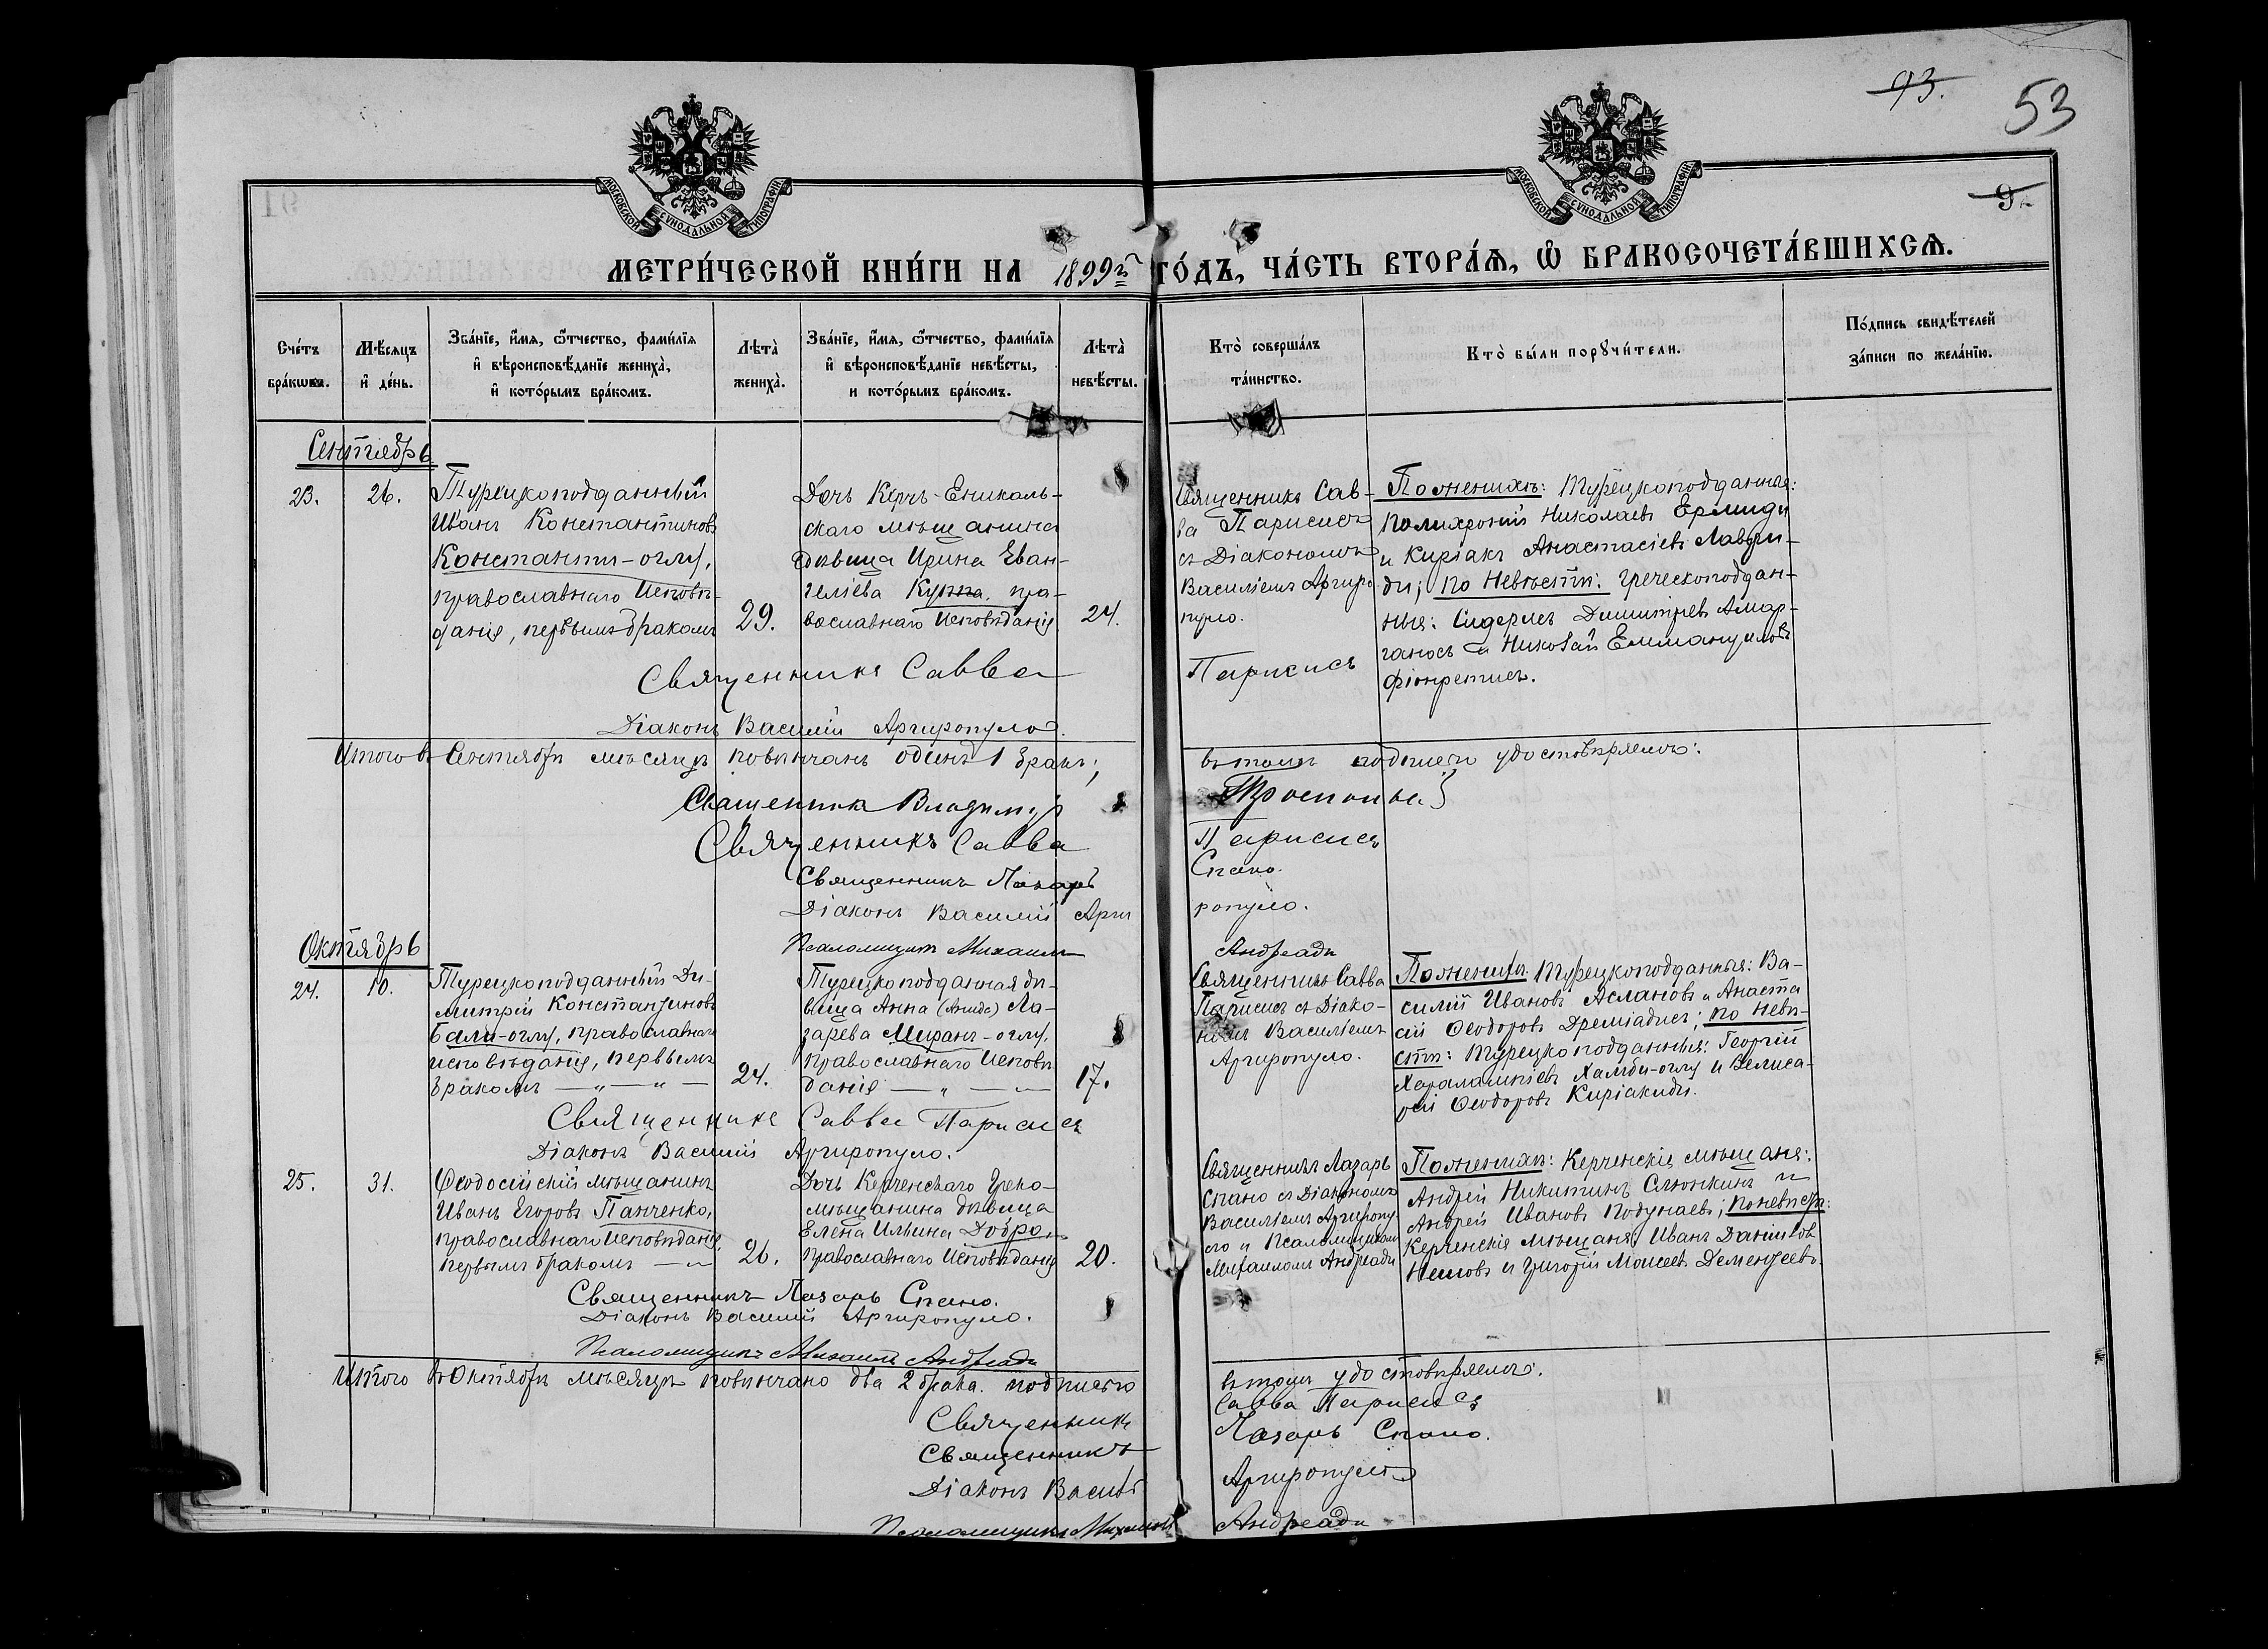 93.
53
9.
МОСКОВСКОЙ СѴНОДАЛЬНОЙ ТИПОГРАФІИ
МОСКОВСКОЙ СѴНОДАЛЬНОЙ ТИПОГРАФІИ
МЕТРИ́ЧЕСКОЙ КНИ́ГИ НА 1899й ГО́ДЪ, ЧА́СТЬ ВТОРА́Ѧ, Ѽ БРАКОСОЧЕТА́ВШИХСѦ.
Сче́тъ бра́кѡвъ.
Мѣ́сѧцъ и҆ де́нь.
Зва́нїе, и҆́мѧ, ѻ҆́тчество, фами́лїѧ и҆ вѣроисповѣ́данїе жениха̀, и҆ кото́рымъ бра́комъ.
Лѣта̀ жениха̀.
Зва́нїе, и҆́мѧ, ѻ҆́тчество, фами́лїѧ и҆ вѣроисповѣ́данїе невѣ́сты, и кото́рымъ бра́комъ.
Лѣта̀ невѣ́сты.
Кто̀ соверша́лъ та́инство.
Кто̀ бы́ли порꙋчи́тели.
По́дпись свидѣ́телей за́писи по жела́нїю.
Сентябрь
23.
26.
Турецкоподданный
Иванъ Константиновъ
Константи-оглу,
православнаго Исповѣ-
данія, первымъ бракомъ
29.
Дочь Керчь-Ениколь-
скаго мѣщанина
дѣвица Ирина Еван-
геліева Курта, пра-
вославнаго Исповѣданія
24.
Священникъ Сав-
ва Парисисъ
съ Діакономъ
Василіемъ Аргиро
пуло.
По женихѣ: Турецкоподданные:
Полихроній Николаевъ Ермиди
и Киріакъ Анастасіевъ Лаври-
ди; по Невѣстѣ: Греческоподдан-
ные: Сидерисъ Димитріевъ Амар-
ганосъ и Николай Еммануиловъ
Священникъ Савва
Парисисъ
Діаконъ Василій Аргиропуло.
Итого въ Сентябрѣ мѣсяцѣ повѣнчанъ одинъ 1 бракъ;
въ томъ подписью удостовѣряемъ:
Священникъ Владиміръ
Священникъ Савва
Парисисъ
Священникъ Лазарь
Спано.
Діаконъ Василій Арги
ропуло.
Псаломщикъ Михаилъ
Андреади
Октябрь
24.
10.
Турецкоподданный Ди-
митрій Константиновъ
Бали-оглу, православнаго
исповѣданія, первымъ
бракомъ — „ — „ —
24.
Турецкоподданная дѣ-
вица Анна Ла-
зарева Миранъ-оглу,
православнаго Исповѣ
данія — „ —
17.
Священникъ Савва
Парисисъ съ Діако-
номъ Василіемъ
Аргиропуло.
По женихѣ: Турецкоподданные: Ва-
силій Ивановъ Аслановъ и Анаста
сій Ѳеодоровъ Дреміадисъ; по невѣ-
стѣ: Турецкоподданные: Георгій
Харалампіевъ Хамби-оглу и Велиса-
рій Ѳеодоровъ Киріакиди.
Священникъ Савва Парисисъ
Діаконъ Василій Аргиропуло.
25.
31.
Ѳеодосійскій мѣщанинъ
Иванъ Егоровъ Панченко,
православнаго Исповѣданія,
первымъ бракомъ — „
26.
Дочь Керченскаго Греко-
мѣщанина дѣвица
Елена Ильина Добро,
православнаго Исповѣданія
20.
Священникъ Лазарь
Спано съ Діакономъ
Василіемъ Аргиропу
ло и Псаломщикомъ
Михаиломъ Андреади
По женихѣ: Керченскіе мѣщане:
Андрей Никитинъ Слюнкинъ и
Андрей Ивановъ Подунаевъ; по невѣстѣ:
Керченскіе мѣщане: Иванъ Даниловъ
и Григорій Моисеевъ Дементьевъ.
Священникъ Лазарь Спано.
Діаконъ Василій Аргиропуло.
Псаломщикъ Михаилъ Андреади
Итого въ Октябрѣ мѣсяцѣ повѣнчано два 2 брака. подписью
въ томъ удостовѣряемъ:
Священникъ
Савва Парисисъ
Священникъ
Лазарь Спано.
Діаконъ Василій
Аргиропуло
Псаломщикъ Михаилъ
Андреади